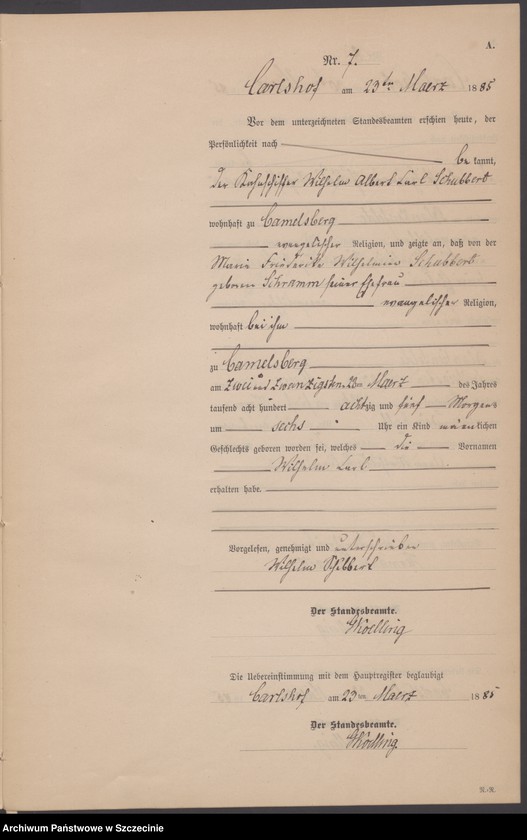 A.
Nr. 7.
Carlshof am 23ten Maerz 1885
Vor dem unterzeichneten Standesbeamten erschien heute, der
Persönlichkeit nach
be kannt,
der Wilhelm Albert Carl Schubbert
wohnhaft zu Camelsberg
evangelischer Religion, und zeigte an, daß von der
Marie Friederike Wilhelmine Schubbert
geborene Schramm seiner Ehefrau
evangelischer Religion,
wohnhaft bei ihm
zu Camelsberg
am zwei und zwanzigsten Maerz des Jahres
tausend acht hundert achtzig und fünf Morgens
um sechs Uhr ein Kind männlichen
Geschlechts geboren worden sei, welches die Vornamen
Wilhelm Carl
erhalten habe.
Vorgelesen, genehmigt und unterschrieben
Wilhelm
Der Standesbeamte.
Die Uebereinstimmung mit dem Hauptregister beglaubigt
Carlshof am 23ten Maerz 1885
Der Standesbeamte.
Archiwum Państwowe w Szczecinie